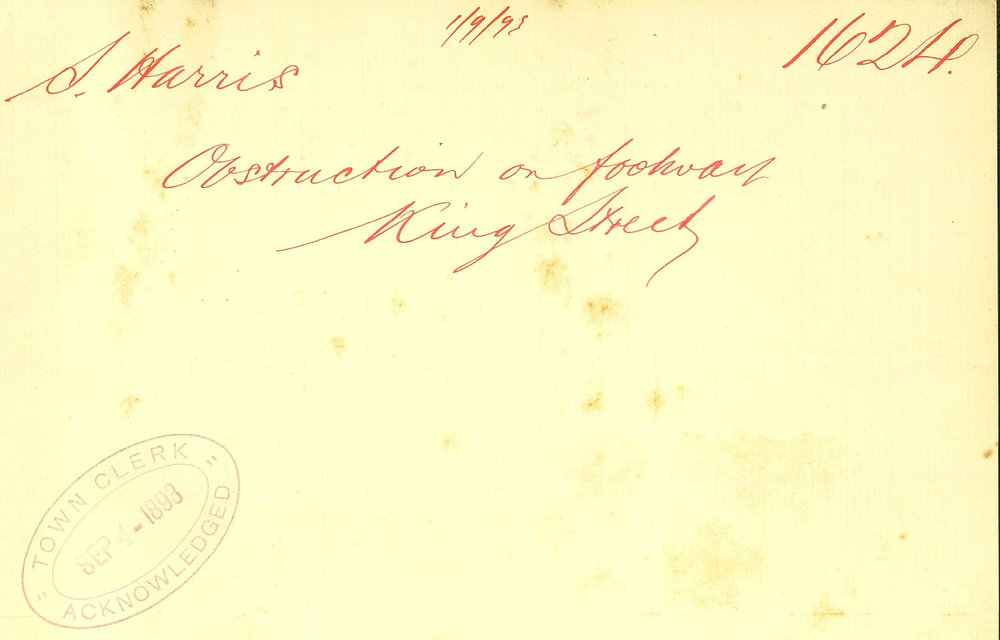 1/9/93
1624.
S. Harris
Obstruction on footway
King Street
"TOWN CLERK"
SEP 4-1893
ACKNOWLEDGED